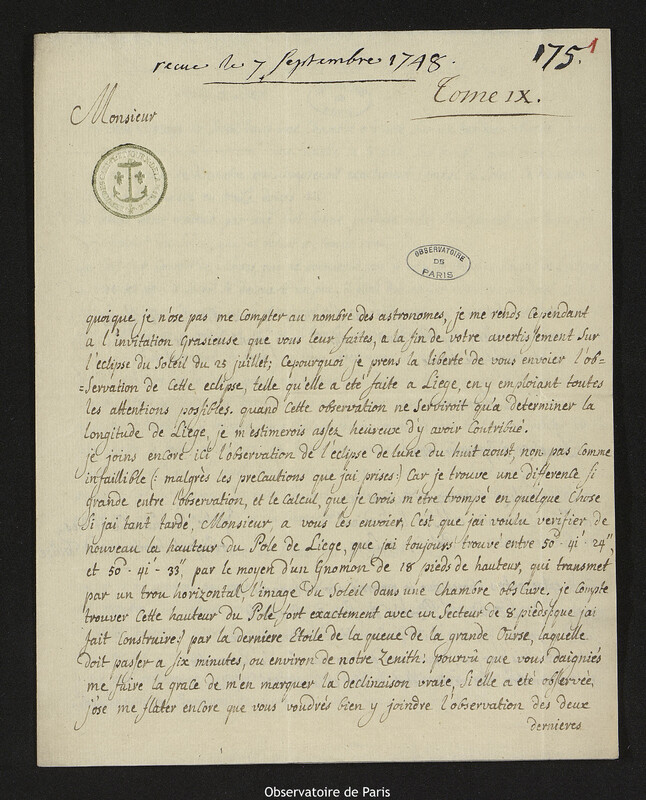 recue le 7 Septembre 1748.
175.1
Tome IX.
Monsieur
OBSERVATOIRE
DE
PARIS
quoique je n'ose pas me Compter au nombre des astronomes, je me rends Cependant
a l'invitation Grasieuse que vous leur faites, a la fin de votre avertissement sur
l'eclipse du Soleil du 25 juillet; Cepourquoi je prens la liberté de vous envoier l'ob-
-servation de Cette eclipse, telle qu'elle a été faite a Liege, en y emploiant toutes
les attentions possibles. quand Cette observation ne Serviroit qu'a determiner la
longitude de Liege, je m'estimerois assez heureux d'y avoir Contribué.
je joins encore ici l'observation de l'eclipse de lune du huit aoust, non pas Comme
infaillible (: malgrès les precautions que jai prises:) Car je trouve une difference si
grande entre l'observation, et le Calcul, que je Crois m'être trompé en quelque Chose
Si jai tant tardé, Monsieur, a vous les envoier, C'est que jai voulu verifier de
nouveau la hauteur du Pole de Liege, que jai toujours trouvé entre 50d. 41'. 24",
et 50d. 41'. 33", par le moyen d'un Gnomon de 18 pieds de hauteur, qui transmet
par un trou horizontal l'image du Soleil dans une Chambre obscure. je Compte
trouver Cette hauteur du Pole fort exactement avec un Secteur de 8 pieds (que jai
fait Construire:) par la derniere Etoile de la queue de la grande Ourse, laquelle
doit passer a six minutes, ou environ de notre Zenith: pourvû que vous daigniés
me faire la grace de m'en marquer la declinaison vraie, Si elle a été observée,
j'ose me flater encore que vous voudrés bien y joindre l'observation des deux
dernieres
Observatoire de Paris